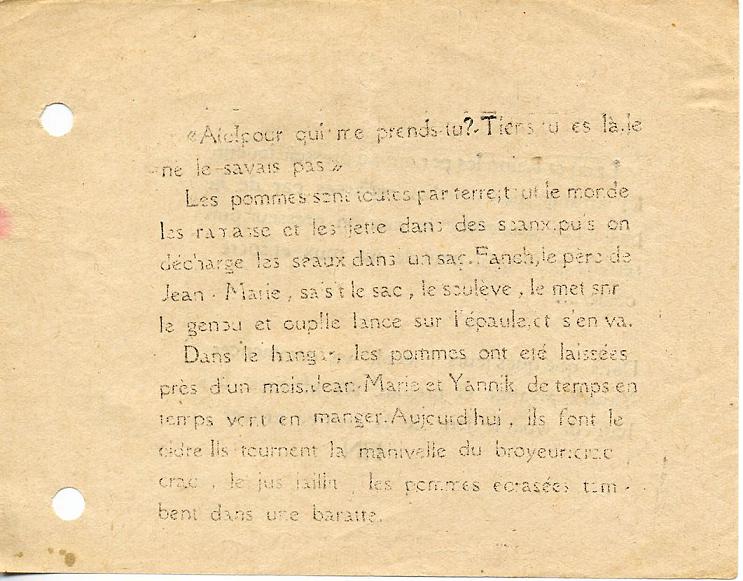 «Aïe!pour qui me prends-tu?-Tiens tu es là,je
ne le savais pas.»
Les pommes sont toutes par terre;tout le monde
les ramasse et les jette dans des seaux,puis on
décharge les seaux dans un sac.Fanch,le père de
Jean-Marie, saisit le sac, le soulève, le met snr
le genou et oup!le lance sur l'épaule,et s'en va.
Dans le hangar, les pommes ont eté laissées
près d'un mois.Jean-Marie et Yannik de temps en
temps vont en manger.Aujourd'hui, ils font le
cidre Ils tournent la manivelle du broyeur:crac
crac, le jus jaillit, les pommes ecrasées tom-
bent dans une baratte.